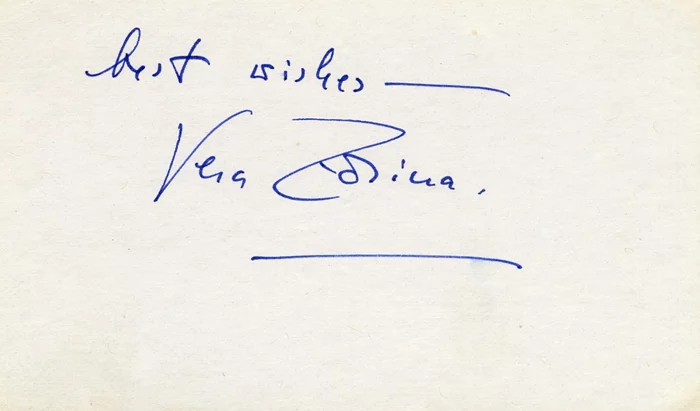 best wishes —
Vera Zorina.